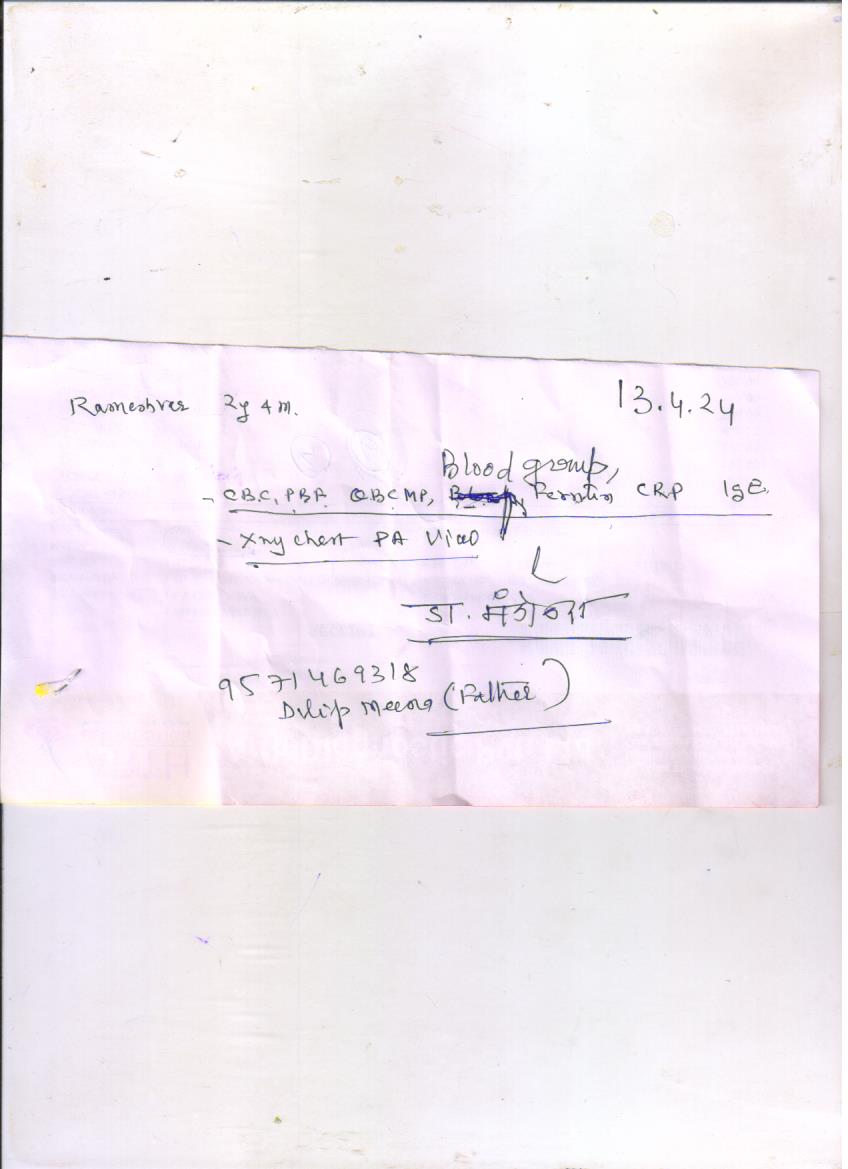 Rameshver 2y 4m. 13.4.24
Blood group,
- CBC, PBF QBC MP, Ferritin CRP IgE.
- Xray chest PA View
डा.
9571469318
Dilip Meena (Father)